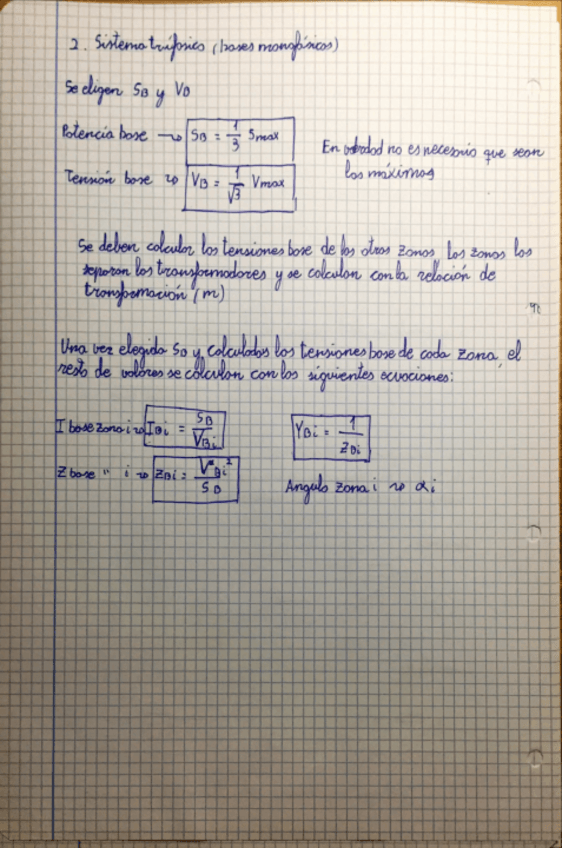 2. Sistema trifásico (bases monofásicas)
Se eligen SB y VB
Potencia base → SB = 1/3 Smax
En verdad no es necesario que sean
los máximos
Tensión base → VB = 1/√3 Vmax
Se deben calcular las tensiones base de las otras zonas. Las zonas las
separan los transformadores y se calculan con la relación de
transformación (m)
Una vez elegida SB y calculadas las tensiones base de cada zona, el
resto de valores se calculan con las siguientes ecuaciones:
I base zona i → IBi = SB/VBi
YBi = 1/ZBi
Z base " i → ZBi = VBi²/SB
Angulo zona i → αi